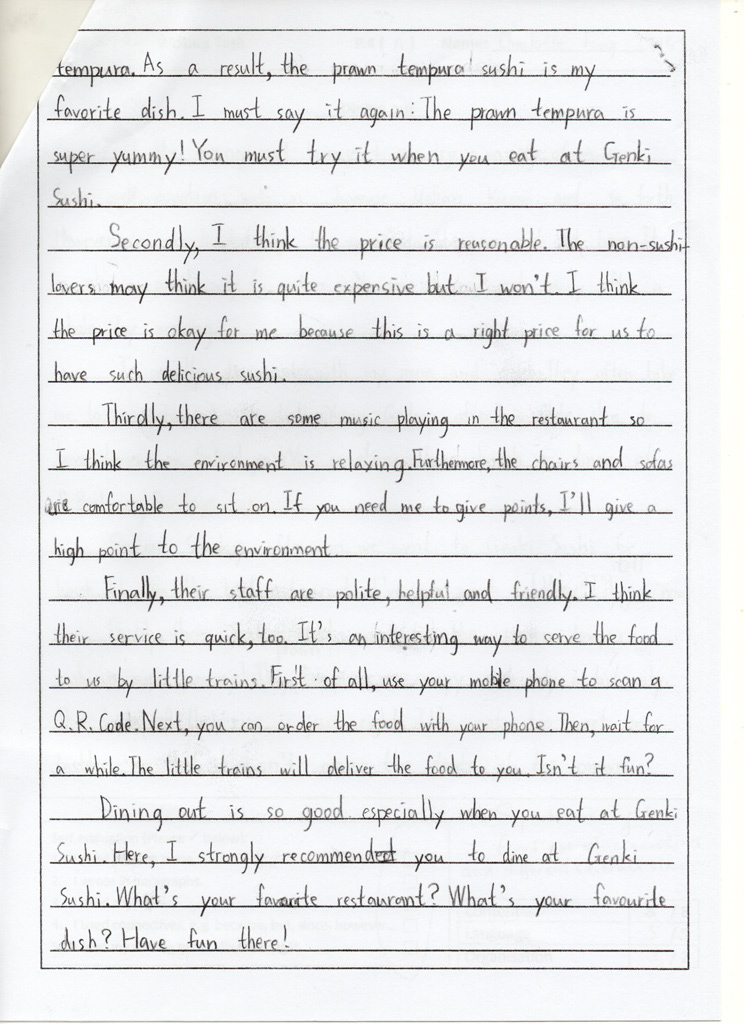 tempura. As a result, the prawn tempura sushi is my
favorite dish. I must say it again: The prawn tempura is
super yummy! You must try it when you eat at Genki
Sushi.
Secondly, I think the price is reasonable. The non-sushi-
lovers may think it is quite expensive but I won't. I think
the price is okay for me because this is a right price for us to
have such delicious sushi.
Thirdly, there are some music playing in the restaurant so
I think the environment is relaxing. Furthermore, the chairs and sofas
are comfortable to sit on. If you need me to give points, I'll give a
high point to the environment.
Finally, their staff are polite, helpful and friendly. I think
their service is quick, too. It's an interesting way to serve the food
to us by little trains. First of all, use your mobile phone to scan a
Q.R. Code. Next, you can order the food with your phone. Then, wait for
a while. The little trains will deliver the food to you. Isn't it fun?
Dining out is so good especially when you eat at Genki
Sushi. Here, I strongly recommended you to dine at Genki
Sushi. What's your favourite restaurant? What's your favourite
dish? Have fun there!